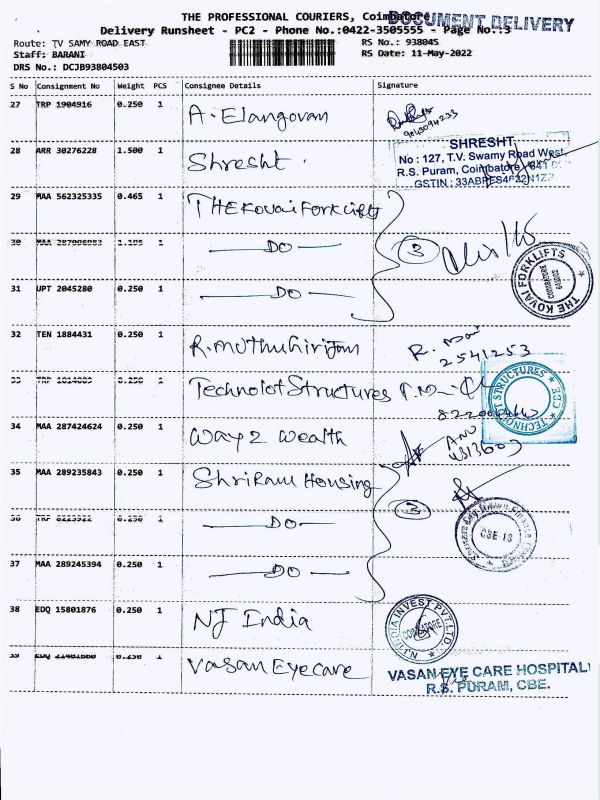 THE PROFESSIONAL COURIERS, Coimbatore
DOCUMENT DELIVERY
Delivery Runsheet - PC2 - Phone No.:0422-3505555 - Page No.:3
Route: TV SAMY ROAD EAST
RS No.: 938045
Staff: BARANI
RS Date: 11-May-2022
DRS No.: DCJB93804503
S No Consignment No Weight PCS Consignee Details Signature
27 TRP 1904916 0.250 1 A. Elangovan
28 ARR 30276228 1.500 1 Shresht.
SHRESHT
No : 127, T.V. Swamy Road West,
R.S. Puram, Coimbatore
GSTIN : 33ABPES4622N1Z
29 MAA 562325335 0.465 1 THE Kovai Forklifts
30 1 DO
3
THE KOVAI FORKLIFTS
COIMBATORE
31 UPT 2045280 0.250 1 DO
32 TEN 1884431 0.250 1 R. muthuGirijan
R.
2541253
33 0.250 1 Technolot Structures
TECHNOLOT STRUCTURES
34 MAA 287424624 0.250 1 Way 2 Wealth
ANU
35 MAA 289235843 0.250 1 ShriRam Housing
36 0.250 1 DO
3
CBE-18
37 MAA 289245394 0.250 1 DO
38 EDQ 15801876 0.250 1 NJ India
NJ INDIA INVEST PVT LTD.
COIMBATORE
39 0.250 1 Vasan Eye care
VASAN EYE CARE HOSPITAL
R.S. PURAM, CBE.